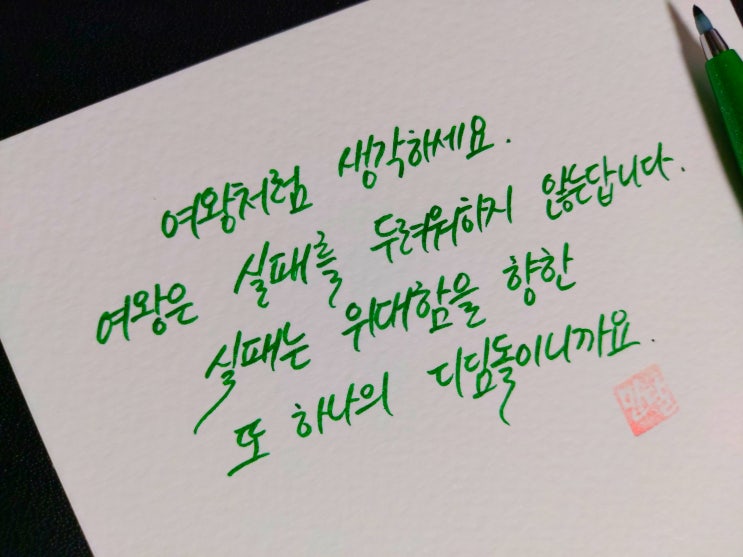 여왕처럼 생각하세요.
여왕은 실패를 두려워하지 않는답니다.
실패는 위대함을 향한
또 하나의 디딤돌이니까요.